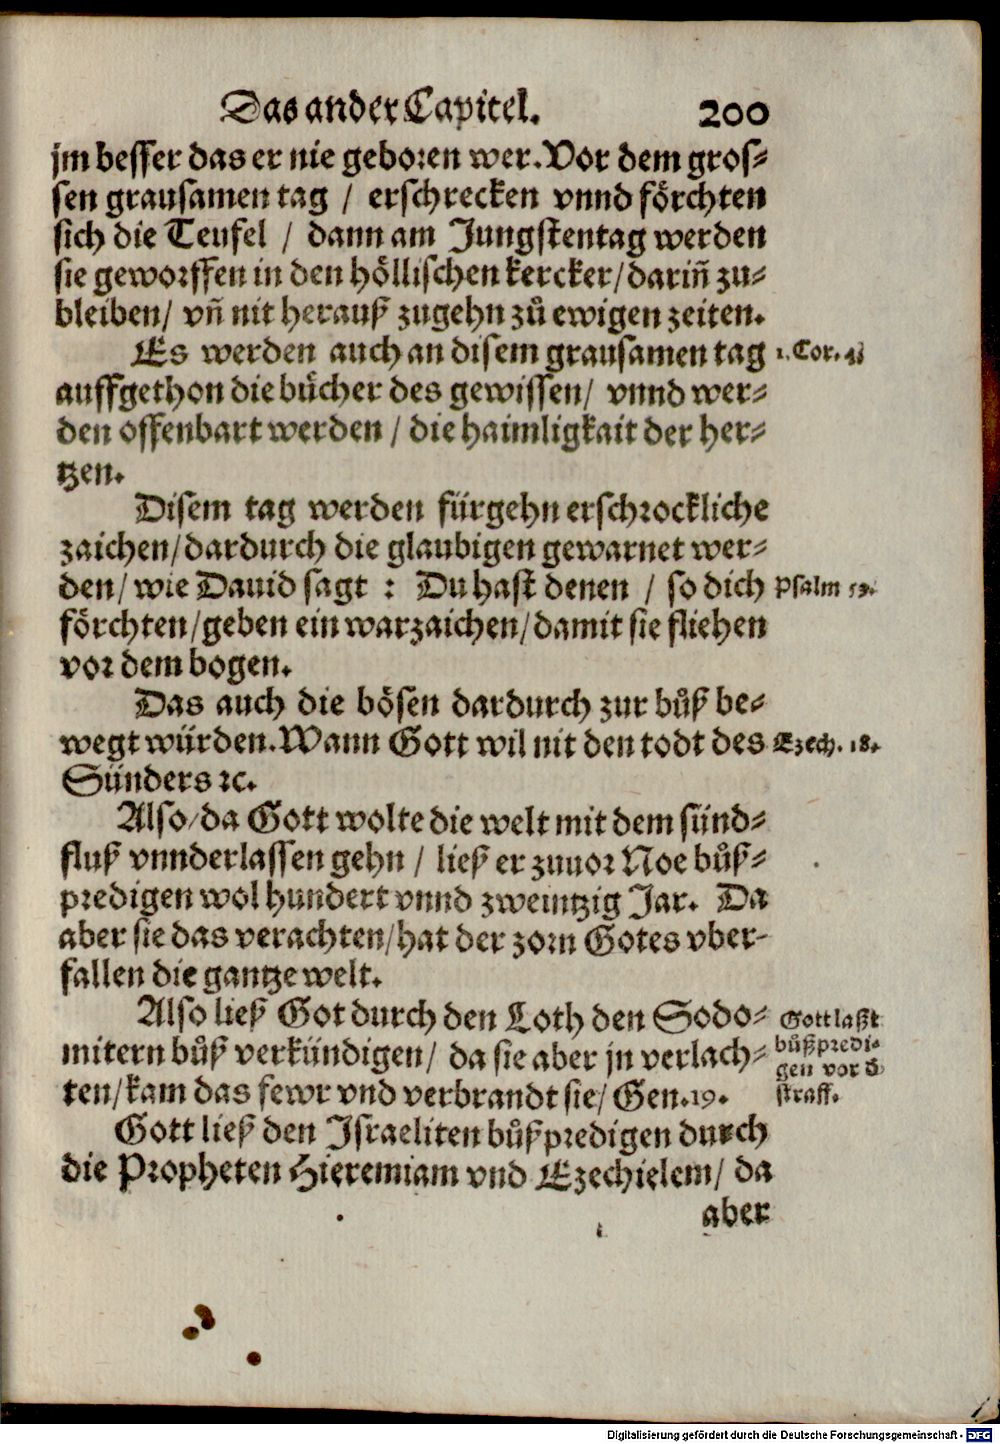 Das ander Capitel. 200
jm besser das er nie geboren wer. Vor dem gros⸗
sen grausamen tag / erschrecken vnnd förchten
sich die Teufel / dann am Jungstentag werden
sie geworffen in den höllischen kercker/ darin̄ zu⸗
bleiben/ vn̄ nit herauß zugehn zů ewigen zeiten.
Es werden auch an disem grausamen tag
1. Cor. 4
auffgethon die bücher des gewissen/ vnnd wer⸗
den offenbart werden / die haimligkait der her⸗
tzen.
Disem tag werden fürgehn erschrockliche
zaichen/ dardurch die glaubigen gewarnet wer⸗
den/ wie Dauid sagt : Du hast denen / so dich
Psalm 59.
förchten/ geben ein warzaichen/ damit sie fliehen
vor dem bogen.
Das auch die bösen dardurch zur bůß be⸗
wegt würden. Wann Gott wil nit den todt des
Ezech. 18.
Sünders ꝛc.
Also/ da Gott wolte die welt mit dem sünd⸗
fluß vnnderlassen gehn / ließ er zuuor Noe bůß⸗
predigen wol hundert vnnd zweintzig Jar. Da
aber sie das verachten/ hat der zorn Gotes vber⸗
fallen die gantze welt.
Also ließ Got durch den Loth den Sodo⸗
mitern bůß verkündigen/ da sie aber jn verlach⸗
ten/ kam das fewr vnd verbrandt sie/ Gen. 19.
Gott laßt
bůßpredi⸗
gen vor d̄
straff.
Gott ließ den Israeliten bůßpredigen durch
die Propheten Hieremiam vnd Ezechielem/ da
aber
Digitalisierung gefördert durch die Deutsche Forschungsgemeinschaft - DFG